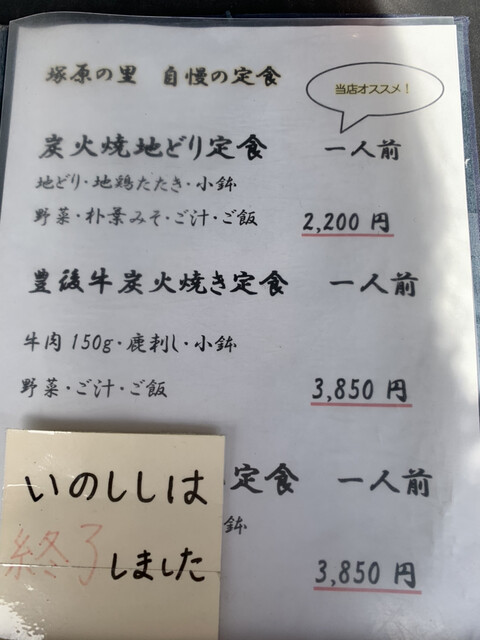 塚原の里 自慢の定食
当店オススメ!
炭火焼地どり定食 一人前
地どり・地鶏たたき・小鉢
野菜・朴葉みそ・ご汁・ご飯 2,200 円
豊後牛炭火焼き定食 一人前
牛肉 150g・鹿刺し・小鉢
野菜・ご汁・ご飯 3,850 円
定食 一人前
小鉢
3,850 円
いのししは
終了しました